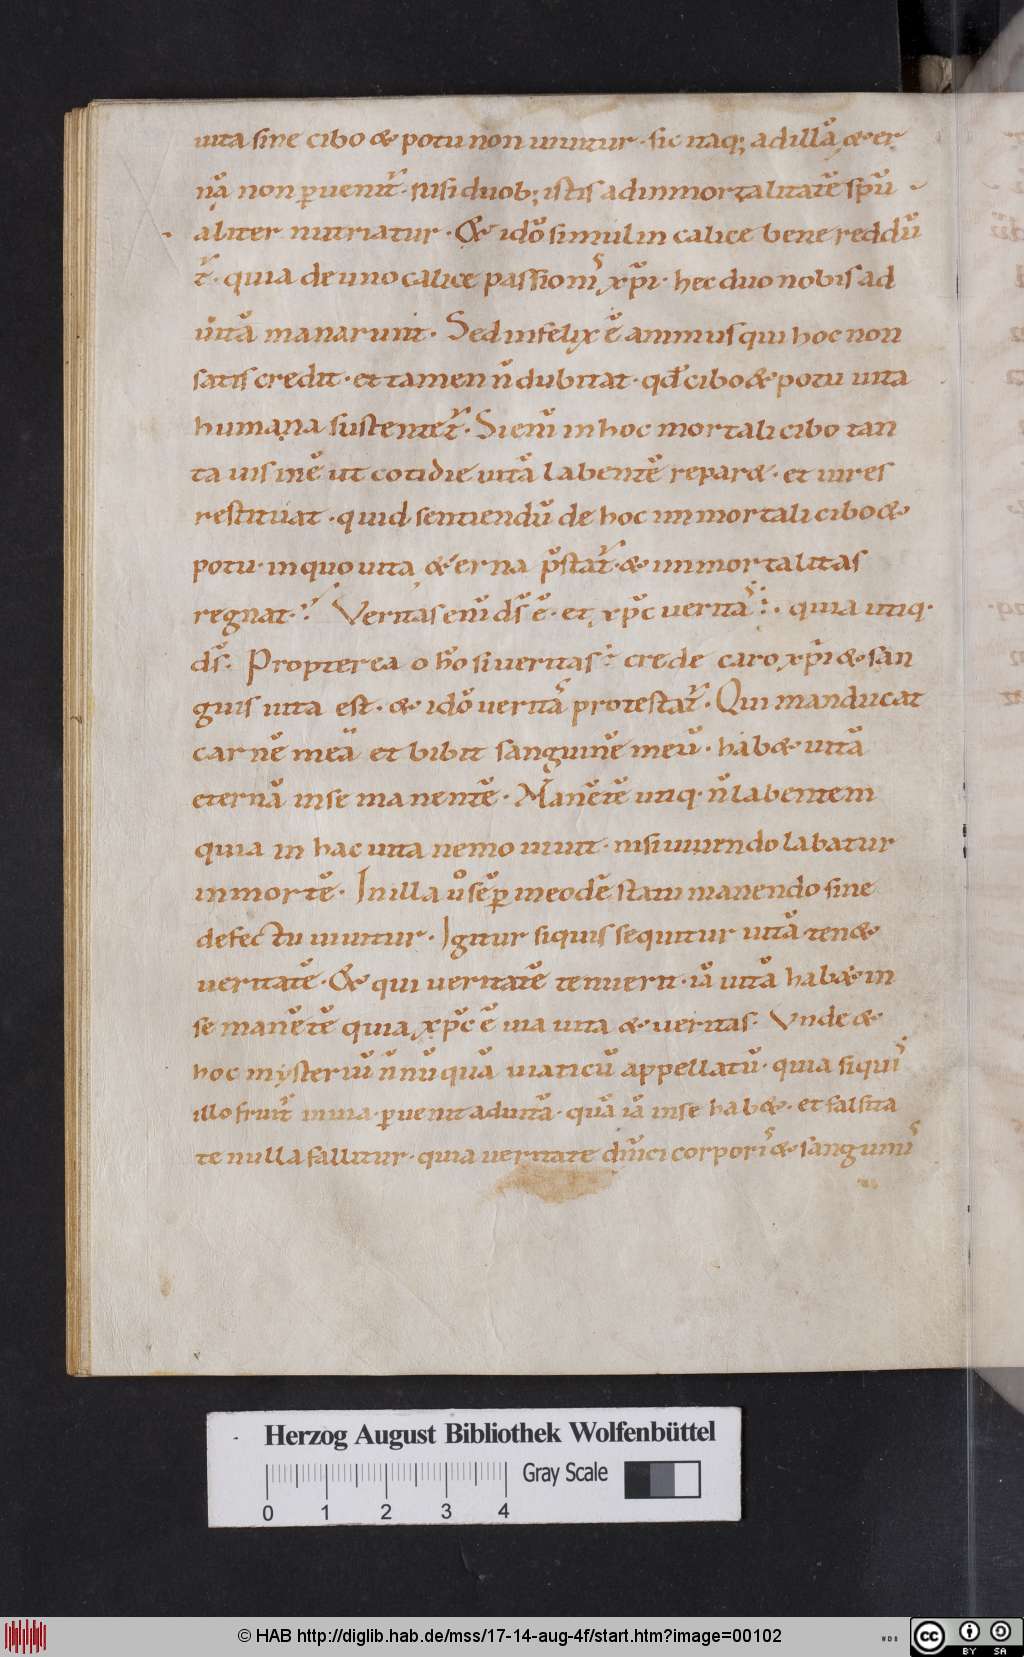 uita sine cibo & potu non uiuitur · sic itaq; ad illā & er
nā non puenit᷑ · nisi duob; istis ad inmortalitatē spū
aliter nutriatur · & idō simul in calice bene reddū
t᷑ · quia de uno calice passionis xp̄i · hec duo nobis ad
uitā manarunt · Sed infelix ē animus qui hoc non
satis credit · et tamen n̄ dubitat · qđ cibo & potu uita
humana sustentet᷑ · Si enī in hoc mortali cibo tan
ta uis inē ut cotidie uitā labentē repar& · et uires
restituat · quid sentiendū de hoc immortali cibo &
potu · in quo uita & erna p̄stat᷑ · & immortalitas
regnat · Veritas enī ds̄ ē · et xp̄c ueritas · quia utiq·
ds̄ · Propterea o hō si ueritas · crede caro xp̄i & san
guis uita est · & idō ueritas protestat᷑ · Qui manducat
carnē meā et bibit sanguinē meū · hab& uitā
eternā in se manentē · Manētē utiq· n̄ labentem
quia in hac uita nemo uiuit · nisi uiuendo labatur
in mortē · In illa ů sēp in eodē statu manendo sine
defectu uiuitur · Igitur siquis sequitur uitā ten&
ueritatē · & qui ueritatē tenuerit · iā uitā hab& in
se manētē quia xp̄c ē uia uita & ueritas · Vnde &
hoc mysteriū n̄nū quā uiaticū appellatū · quia siquis
illo fruit᷑ in uia · puenit ad uitā · quā iā in se hab& · et falsita
te nulla fallitur · quia ueritate dn̄ici corporis & sanguinis
Herzog August Bibliothek Wolfenbüttel
Gray Scale
0 1 2 3 4
© HAB http://diglib.hab.de/mss/17-14-aug-4f/start.htm?image=00102
WDB
cc BY SA